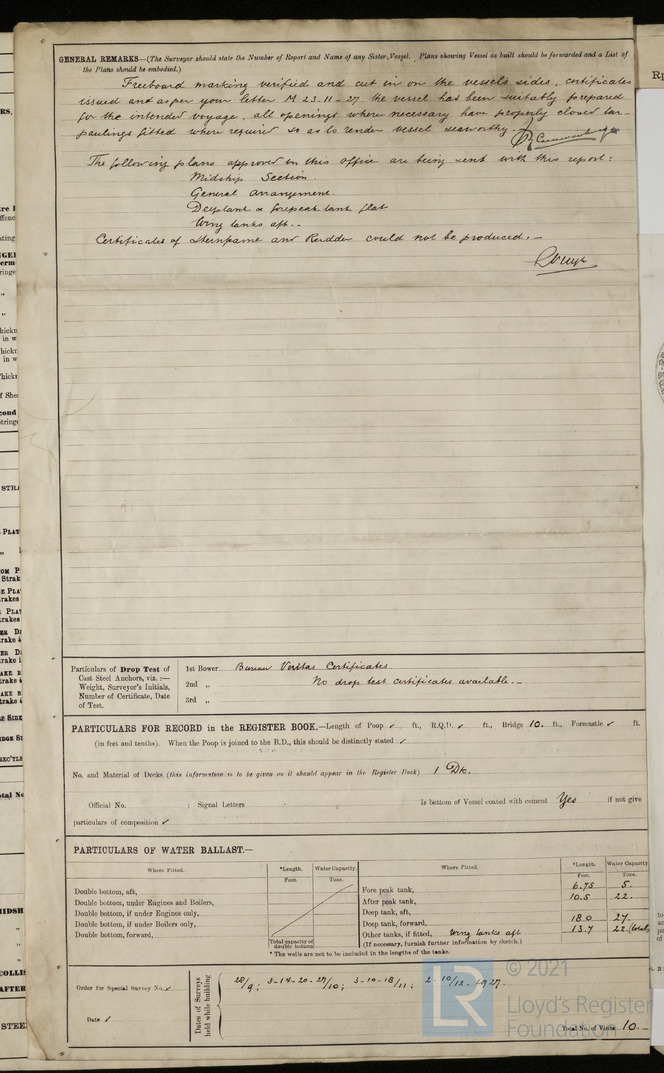 GENERAL REMARKS—(The Surveyor should state the Number of Report and Name of any Sister Vessel. Plans showing Vessel as built should be forwarded and a List of
the Plans should be embodied.)
Freeboard marking verified and cut in on the vessels sides, certificates
issued and as per your letter M 23-11-27 the vessel has been suitably prepared
for the intended voyage, all openings where necessary have properly closed tar-
paulings fitted where required so as to render vessel seaworthy.
The following plans approved in this office are being sent with this report:
Midship Section
General arrangement
Deeptank & forepeak tank flat
Wing tanks aft..
Certificates of Sternframe and Rudder could not be produced. —
Particulars of Drop Test of
Cast Steel Anchors, viz. :—
Weight, Surveyor's Initials,
Number of Certificate, Date
of Test.
1st Bower Bureau Veritas Certificates
2nd „ No drop test certificates available. —
3rd „
PARTICULARS FOR RECORD in the REGISTER BOOK.—Length of Poop ✓ ft., R.Q.D. ✓ ft., Bridge 10. ft., Forecastle ✓ ft.
(in feet and tenths). When the Poop is joined to the B.D., this should be distinctly stated ✓
No. and Material of Decks (this information is to be given as it should appear in the Register Book) 1 Dk.
Official No. ; Signal Letters Is bottom of Vessel coated with cement Yes if not give
particulars of composition ✓
PARTICULARS OF WATER BALLAST.—
Where Fitted. *Length. Water Capacity. Where Fitted. *Length. Water Capacity
Feet. Tons. Feet. Tons.
Double bottom, aft, Fore peak tank, 6.75 5.
Double bottom, under Engines and Boilers, After peak tank, 10.5 22.
Double bottom, if under Engines only, Deep tank, aft,
Double bottom, if under Boilers only, Deep tank, forward, 18.0 27.
Double bottom, forward, Other tanks, if fitted, Wing tanks aft 13.7 22 (total)
Total capacity of double bottom (If necessary, furnish further information by sketch.)
* The wells are not to be included in the lengths of the tanks.
Order for Special Survey No. ✓
Date ✓
Dates of Surveys held while building
20/9; 3-14-20-27/10; 3-10-18/11; 2-10/12 - 1927.
Total No. of Visits 10.—
© 2021
LR
Lloyd's Register
Foundation